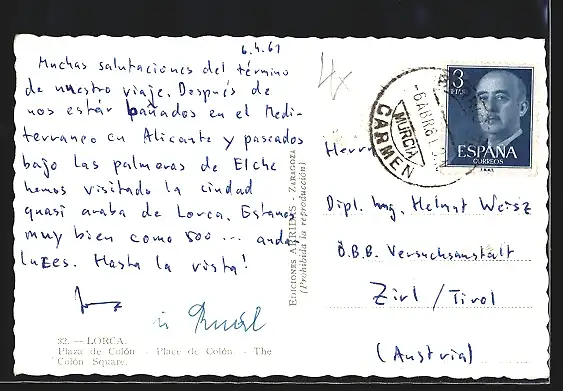 6.4.61
Muchas salutaciones del término
de nuestro viaje. Después de
nos estar bañados en el Medi-
terraneo en Alicante y paseados
bajo las palmeras de Elche
hemos visitado la ciudad
quasi araba de Lorca. Estamos
muy bien como 500 ... anda
luzes. Hasta la vista!
32. — LORCA.
Plaza de Colón - Place de Colón - The
Colón Square.
EDICIONES ARRIBAS - ZARAGOZA
(Prohibida la reproducción)
MURCIA
CARMEN
3
PTAS
ESPAÑA
CORREOS
Herrn
Dipl. Ing. Helmut Weisz
Ö.B.B. Versuchsanstalt
Zirl / Tirol
(Austria)